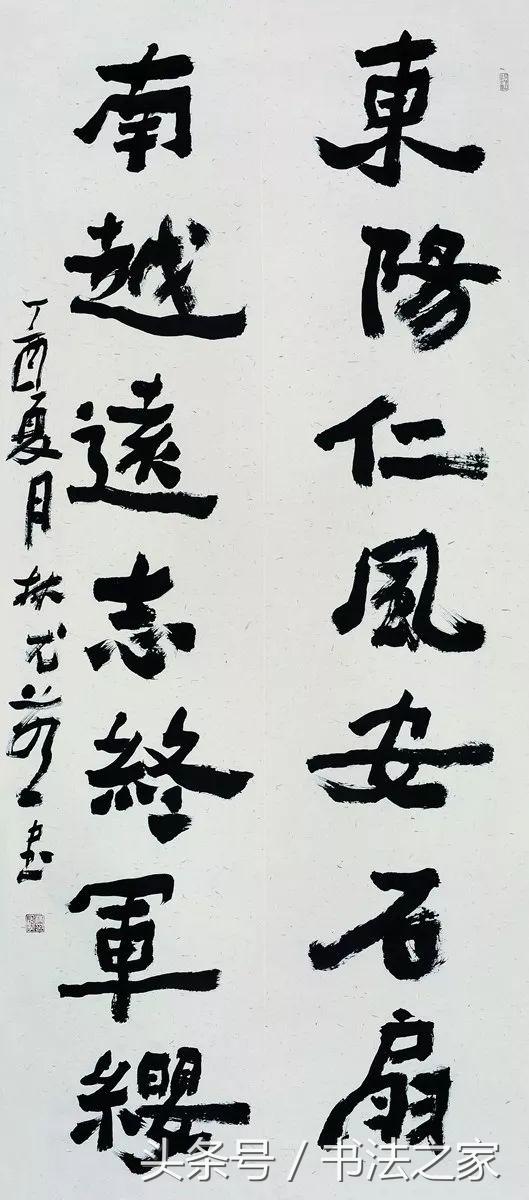 東陽仁風安石扇
南越遠志終軍纓
丁酉夏月林尤葵書
头条号 / 书法之家